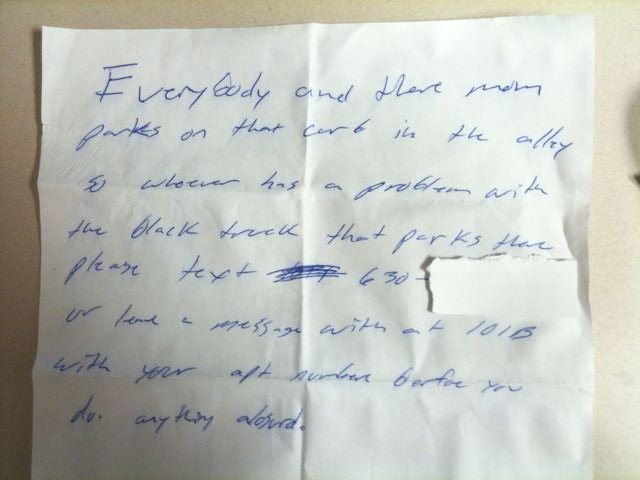 Everybody and there mom
parks on that curb in the alley
so whoever has a problem with
the black truck that parks there
please text 630-
or leave a message with at 101B
with your apt number before you
do. anything absurd.